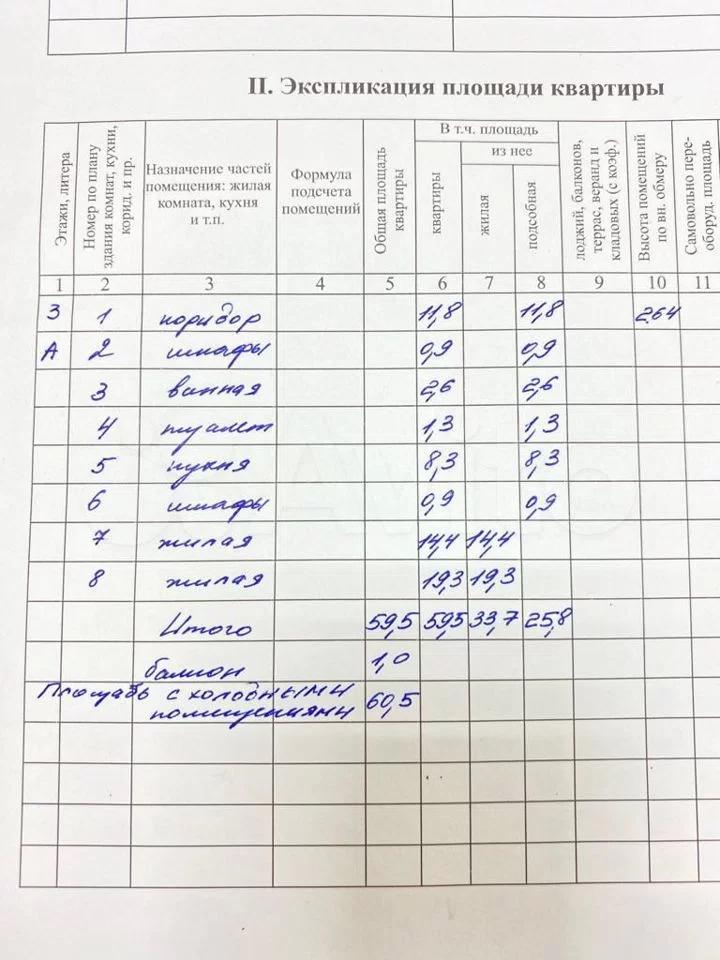 II. Экспликация площади квартиры
Этажи, литера
Номер по плану здания комнат, кухни, корид. и пр.
Назначение частей помещения: жилая комната, кухня и т.п.
Формула подсчета помещений
Общая площадь квартиры
В т.ч. площадь
из нее
квартиры
жилая
подсобная
лоджий, балконов, террас, веранд и кладовых (с коэф.)
Высота помещений по вн. обмеру
Самовольно пере-оборуд. площадь
1 2 3 4 5 6 7 8 9 10 11
3 1 коридор 11,8 11,8 2,64
А 2 шкафы 0,9 0,9
3 ванная 2,6 2,6
4 туалет 1,3 1,3
5 кухня 8,3 8,3
6 шкафы 0,9 0,9
7 жилая 14,4 14,4
8 жилая 19,3 19,3
Итого 59,5 59,5 33,7 25,8
балкон 1,0
Площадь с холодными
помещениями 60,5